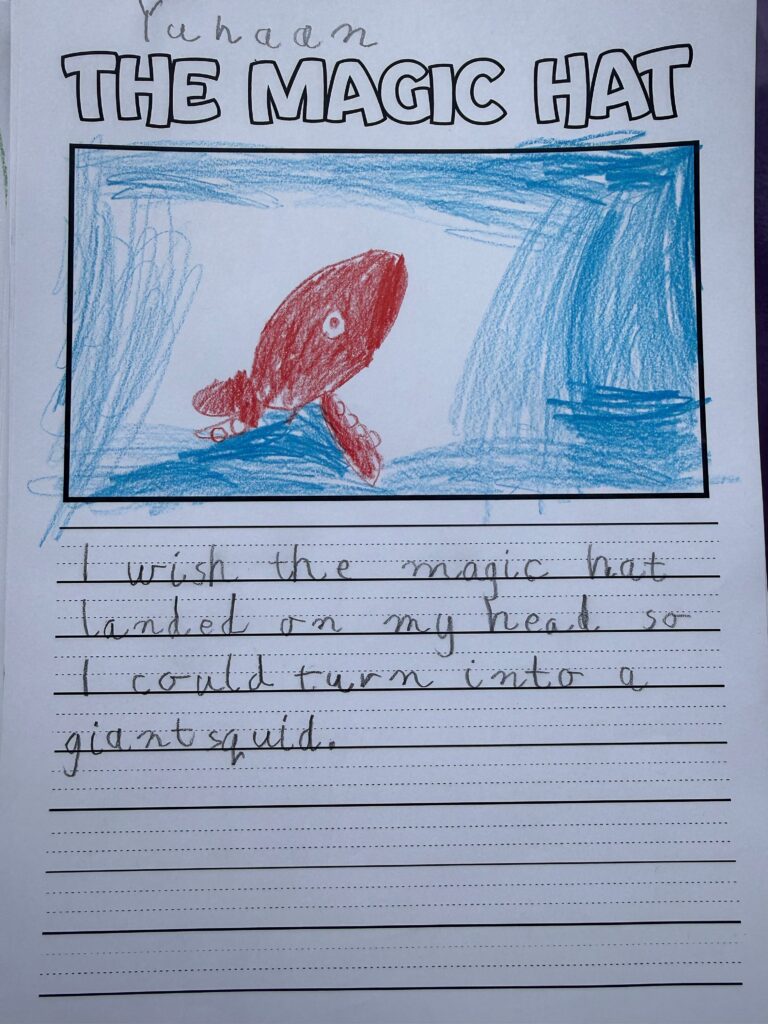 Yuhaan
THE MAGIC HAT
I wish the magic hat
landed on my head so
I could turn into a
giant squid.